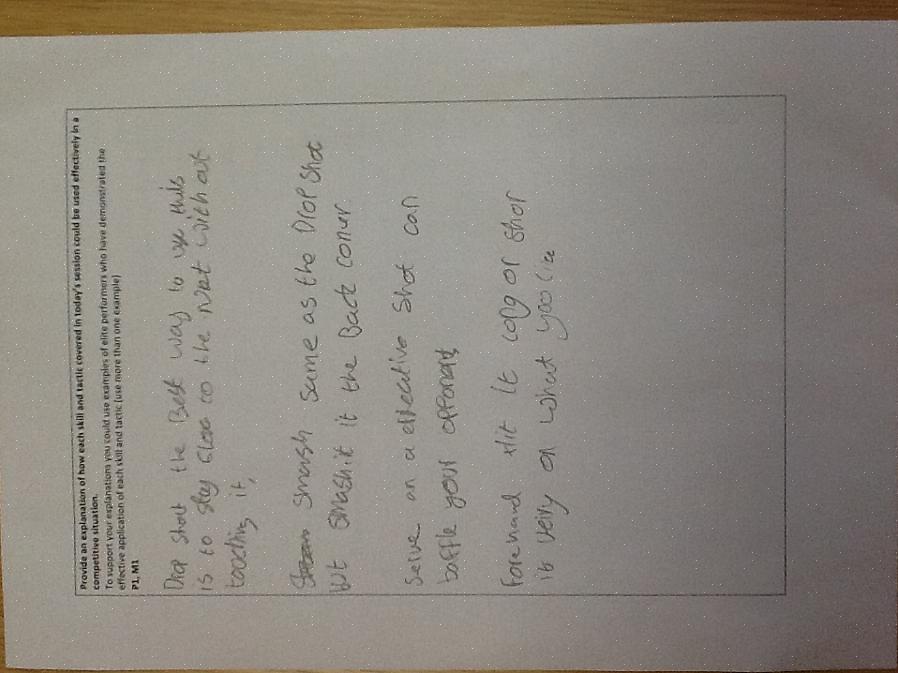 Provide an explanation of how each skill and tactic covered in today's session could be used effectively in a
competitive situation.
To support your explanations you could use examples of elite performers who have demonstrated the
effective application of each skill and tactic (use more than one example)
P1, M1
Drop shot the Best way to use this
is to stay close to the Net with out
touching it,
Smash same as the Drop shot
but smash it it the Back conner
Serve on a effecative shot can
baffle your opponant
Forehand Hit it long or shor
it veiry on what yoo like